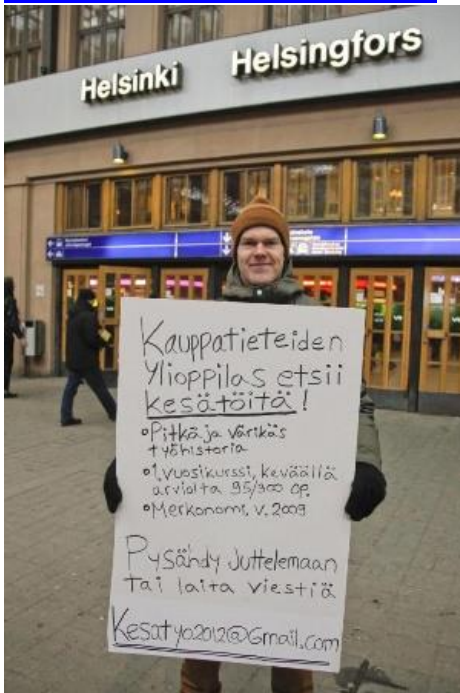 Helsinki Helsingfors
Kauppatieteiden
Ylioppilas etsii
kesätöitä!
•Pitkä ja värikäs
työhistoria
•1. vuosikurssi, keväällä
arviolta 95/300 op.
•Merkonomi, v. 2009
Pysähdy juttelemaan
tai laita viestiä
Kesatyo2012@Gmail.com